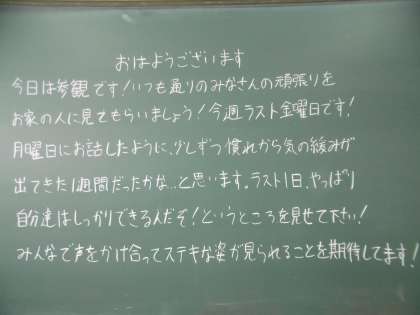 おはようございます
今日は参観です！いつも通りのみなさんの頑張りを
お家の人に見てもらいましょう！今週ラスト金曜日です！
月曜日にお話したように、少しずつ慣れから気の緩みが
出てきた1週間だったかな…と思います。ラスト1日、やっぱり
自分達はしっかりできるんだぞ！というところを見せて下さい！
みんなで声をかけ合ってステキな姿が見られることを期待してます！